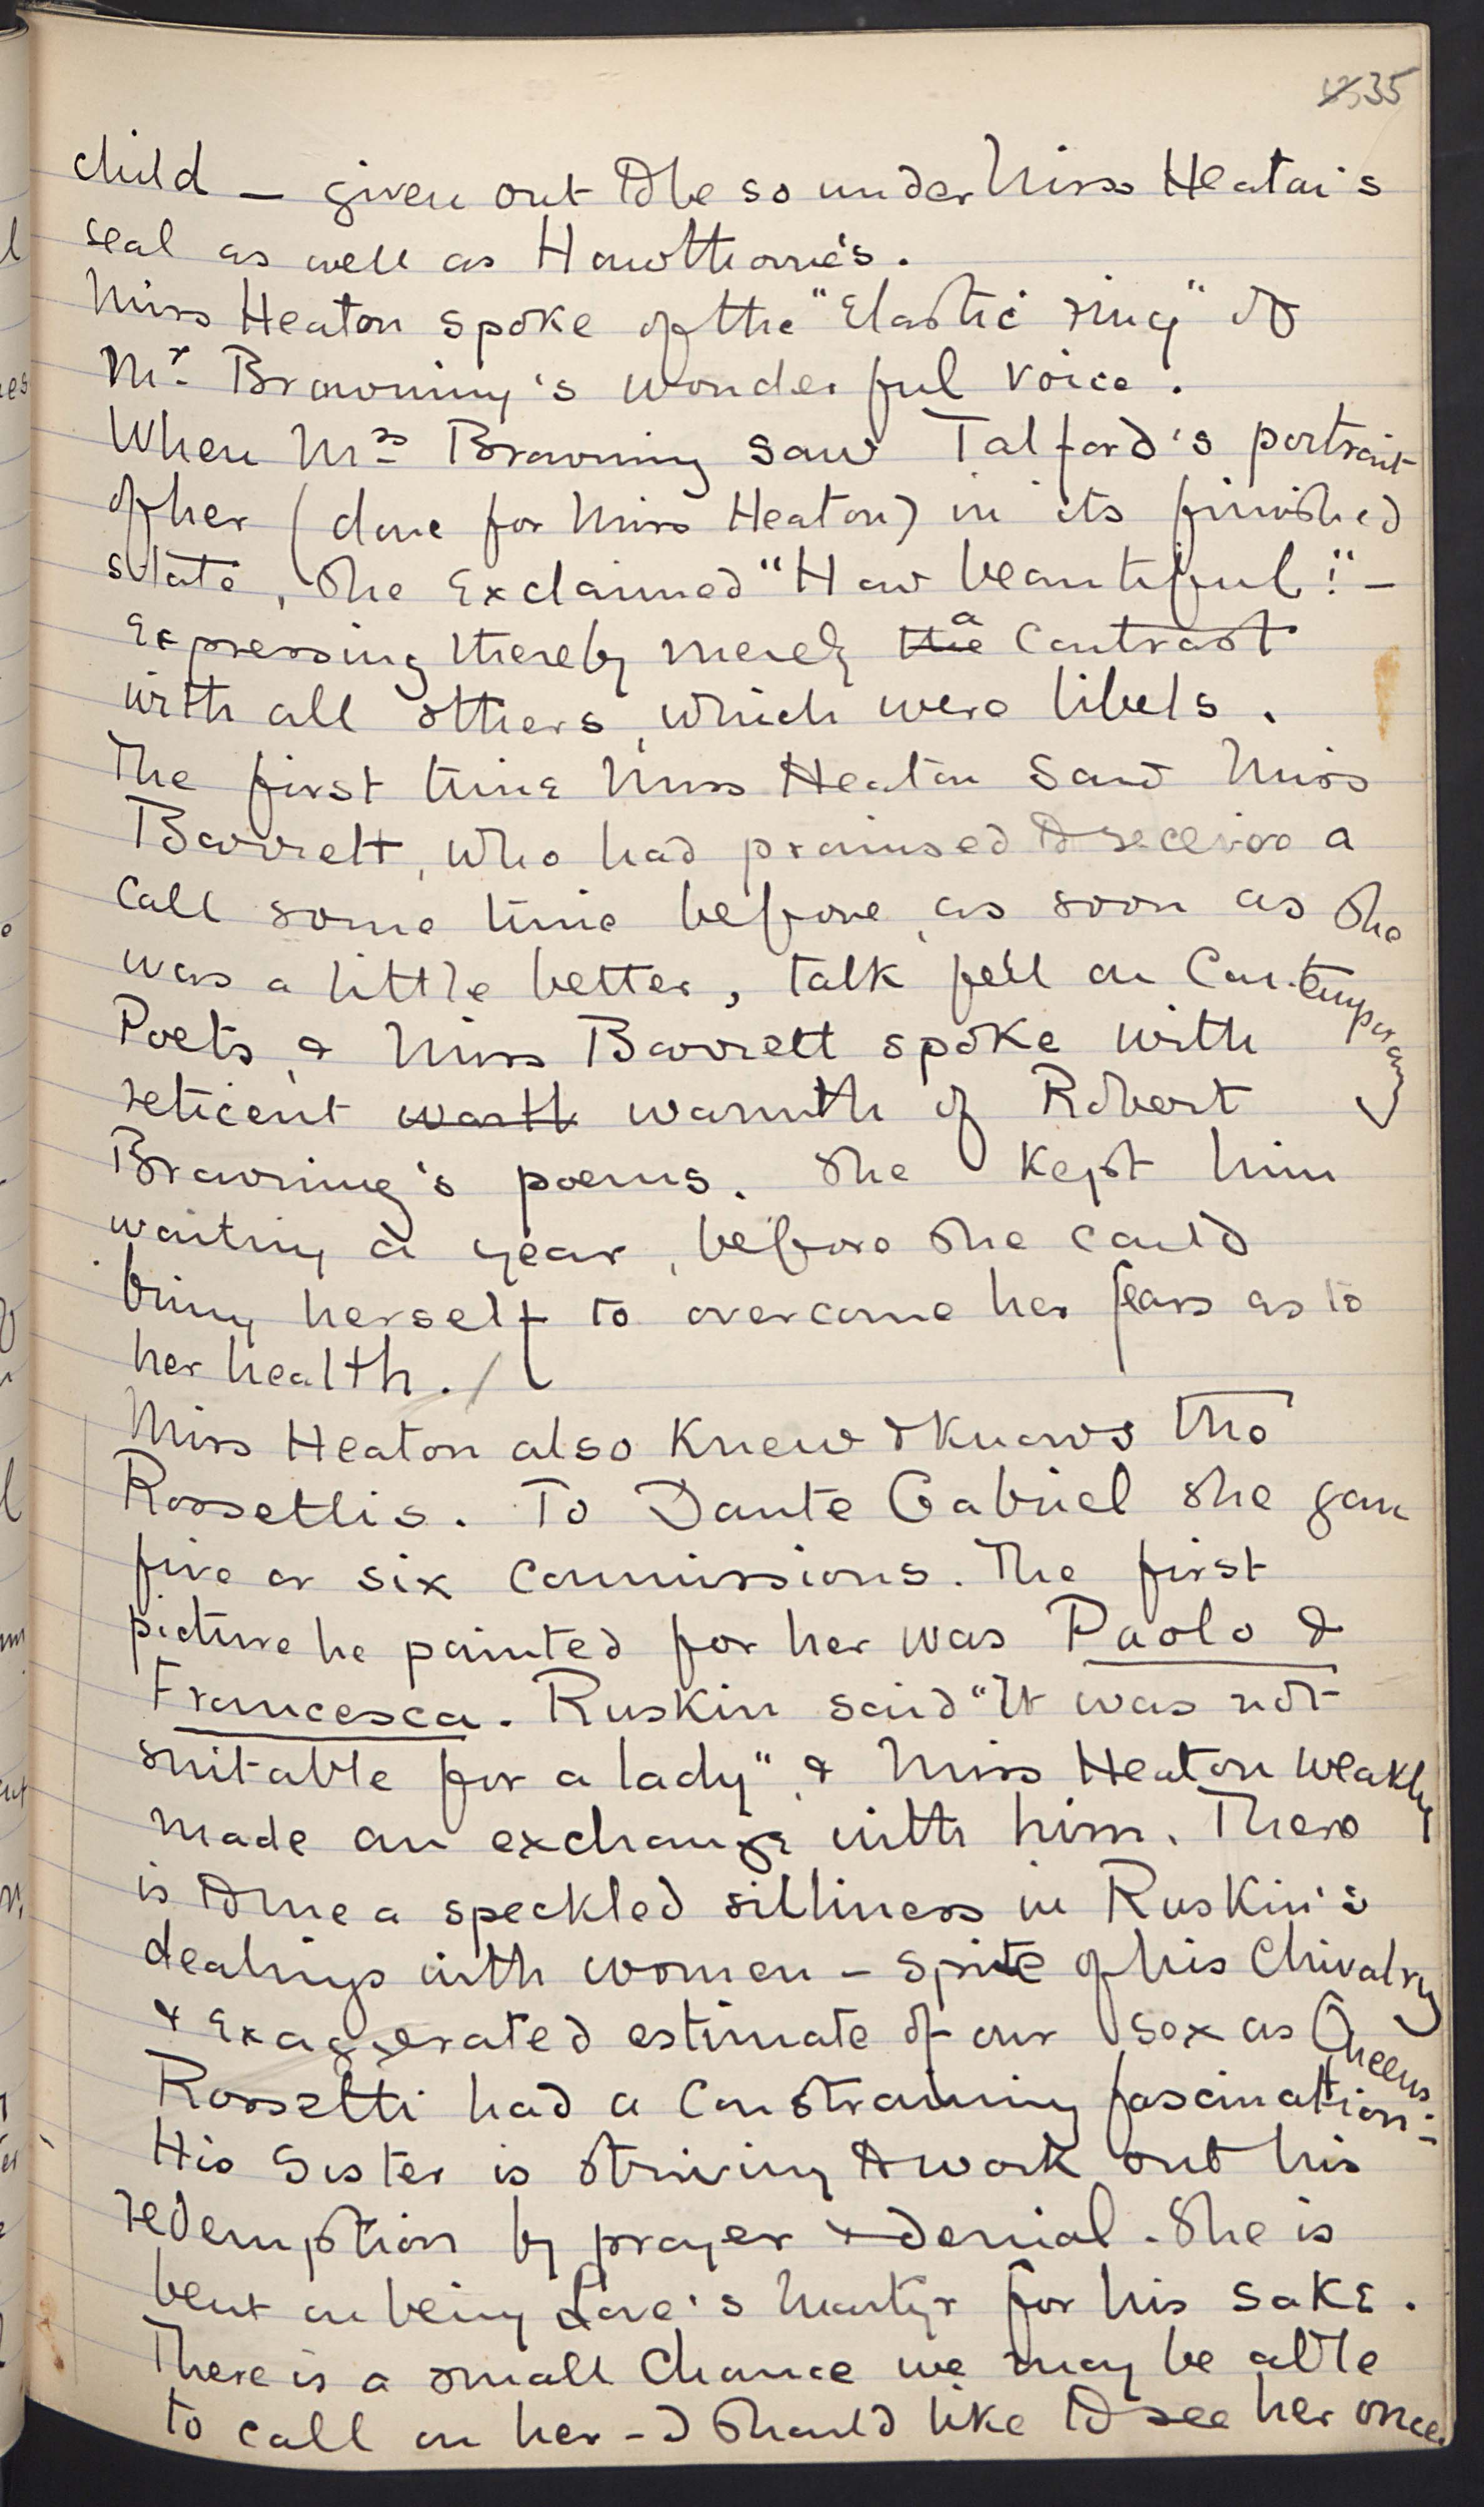 35
child — given out to be so under Miss Heaton's
seal as well as Hawthorne's.
Miss Heaton spoke of the "Elastic ring" of
Mr. Browning's wonderful voice.
When Mrs Browning saw Talford's portrait
of her (done for Miss Heaton) in its finished
state, she exclaimed "How beautiful!" —
Expressing thereby merely the a contrast
with all others, which were libels.
The first time Miss Heaton saw Miss
Barrett, who had promised to receive a
call some time before, as soon as she
was a little better, talk fell on Contemporary
Poets, & Miss Barrett spoke with
reticent warth warmth of Robert
Browning's poems. She kept him
waiting a year, before she could
bring herself to overcome her fears as to
her health. /
Miss Heaton also knew & knows the
Rossettis. To Dante Gabriel she gave
five or six commissions. The first
picture he painted for her was Paolo &
Francesca. Ruskin said "It was not
suitable for a lady", & Miss Heaton weakly
made an exchange with him. There
is to me a speckled silliness in Ruskin's
dealings with women — spite of his chivalry
& Exaggerated estimate of our sex as Queens.
Rossetti had a constraining fascination:—
His Sister is striving to work out his
redemption by prayer & denial. She is
bent on being Love's Martyr for his sake.
There is a small chance we may be able
to call on her — I should like to see her once.